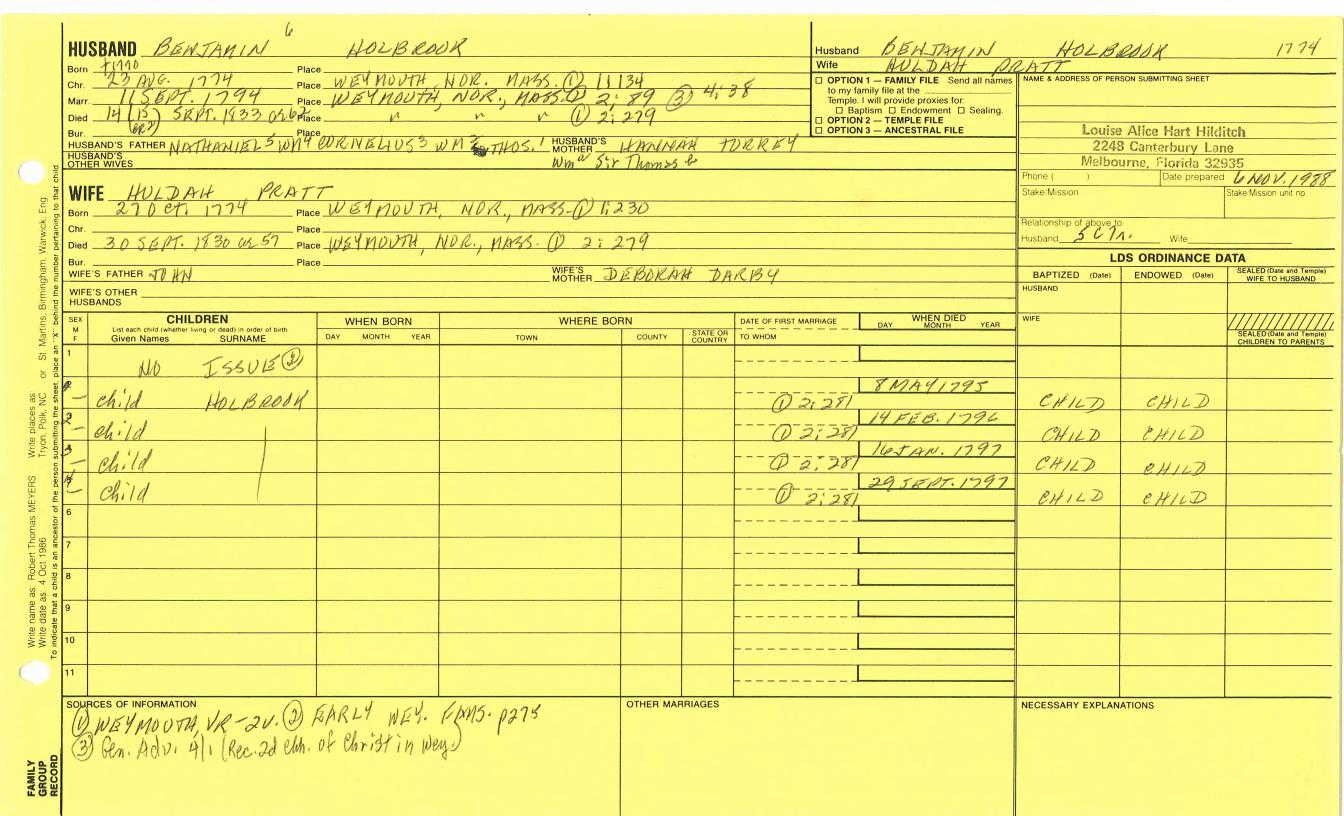 6
HUSBAND BENJAMIN HOLBROOK
Born Place
Chr. 23 AUG. 1774 Place WEYMOUTH, NOR. MASS. ① 1:134
Marr. 11 SEPT. 1794 Place WEYMOUTH, NOR., MASS. ① 2:89 ③ 4:38
Died 14 (15) SEPT. 1833 or 62 Place " " " ① 2:279
Bur. Place
HUSBAND'S FATHER NATHANIEL5 WM4 CORNELIUS3 WM2 THOS.1 HUSBAND'S MOTHER HANNAH TORREY
HUSBAND'S OTHER WIVES Wma Sir Thomas b
Husband BENJAMIN HOLBROOK 1774
Wife HULDAH PRATT
☐ OPTION 1 — FAMILY FILE Send all names
to my family file at the
Temple. I will provide proxies for:
☐ Baptism ☐ Endowment ☐ Sealing.
☐ OPTION 2 — TEMPLE FILE
☐ OPTION 3 — ANCESTRAL FILE
NAME & ADDRESS OF PERSON SUBMITTING SHEET
Louise Alice Hart Hilditch
2248 Canterbury Lane
Melbourne, Florida 32935
Phone ( ) Date prepared 6 NOV. 1988
Stake/Mission Stake/Mission unit no.
Relationship of above to:
Husband Wife
WIFE HULDAH PRATT
Born 27 OCT. 1774 Place WEYMOUTH, NOR., MASS. ① 1:230
Chr. Place
Died 30 SEPT. 1830 or 57 Place WEYMOUTH, NOR., MASS. ① 2:279
Bur. Place
WIFE'S FATHER JOHN WIFE'S MOTHER DEBORAH DARBY
WIFE'S OTHER HUSBANDS
LDS ORDINANCE DATA
BAPTIZED (Date) ENDOWED (Date) SEALED (Date and Temple) WIFE TO HUSBAND
HUSBAND
WIFE
SEALED (Date and Temple) CHILDREN TO PARENTS
SEX M F CHILDREN WHEN BORN WHERE BORN DATE OF FIRST MARRIAGE WHEN DIED
List each child (whether living or dead) in order of birth
Given Names SURNAME DAY MONTH YEAR TOWN COUNTY STATE OR COUNTRY TO WHOM DAY MONTH YEAR
1 NO ISSUE ②
8 MAY 1795
2 child HOLBROOK ① 2:281 CHILD CHILD
14 FEB. 1796
3 child ① 2:281 CHILD CHILD
16 JAN. 1797
4 child ① 2:281 CHILD CHILD
29 SEPT. 1797
5 child ① 2:281 CHILD CHILD
6
7
8
9
10
11
SOURCES OF INFORMATION
① WEYMOUTH, VR-2v. ② EARLY WEY. FAMS. p275
③ Gen. Adv. 4/1 (Rec. 2d chh. of Christ in Wey.)
OTHER MARRIAGES
NECESSARY EXPLANATIONS
Write name as: Robert Thomas MEYERS Write places as: Tryon, Polk, NC or St. Martins, Birmingham, Warwick, Eng.
Write date as: 4 Oct 1986
To indicate that a child is an ancestor of the person submitting the sheet, place an "X" behind the number pertaining to that child.
FAMILY GROUP RECORD